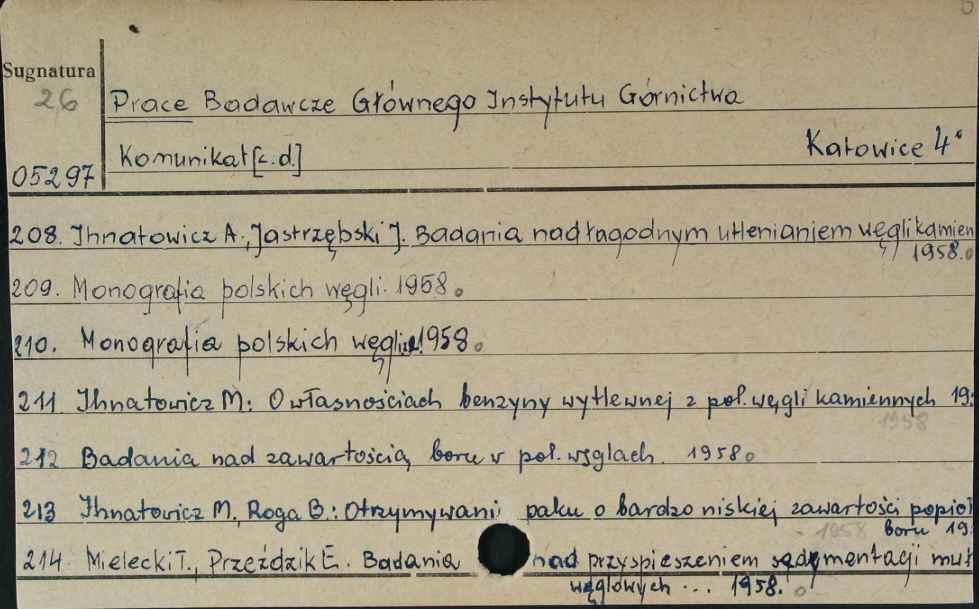 Sugnatura
26
Prace Badawcze Głównego Instytutu Górnictwa
Komunikat [c.d.] Katowice 4°
05297
208. Ihnatowicz A., Jastrzębski J. Badania nad łagodnym utlenianiem węgli kamien
1958.
209. Monografia polskich węgli. 1958.
210. Monografia polskich węgli 1958.
211 Ihnatowicz M: O własnościach benzyny wytlewnej z pol. węgli kamiennych 19
1958
212 Badania nad zawartością boru w pol. węglach. 1958.
213 Ihnatowicz M., Roga B.: Otrzymywani paku o bardzo niskiej zawartości popioł
1958 boru 19
214 Mielecki T., Przeździk E. Badania nad przyspieszeniem sedymentacji muł
węglowych ... 1958.